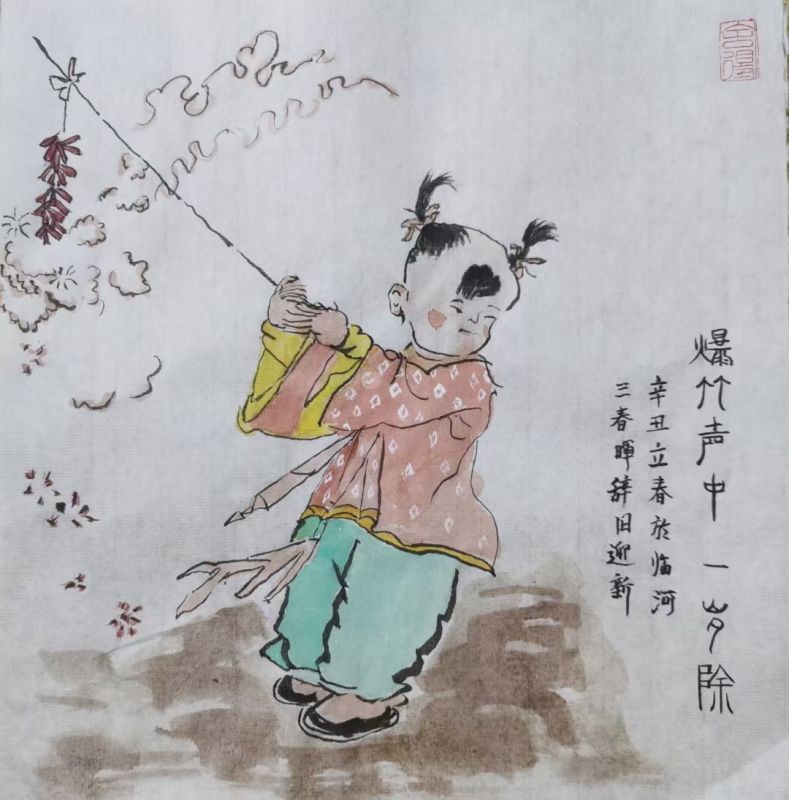 爆竹声中一岁除
辛丑立春於临河
三春晖辞旧迎新